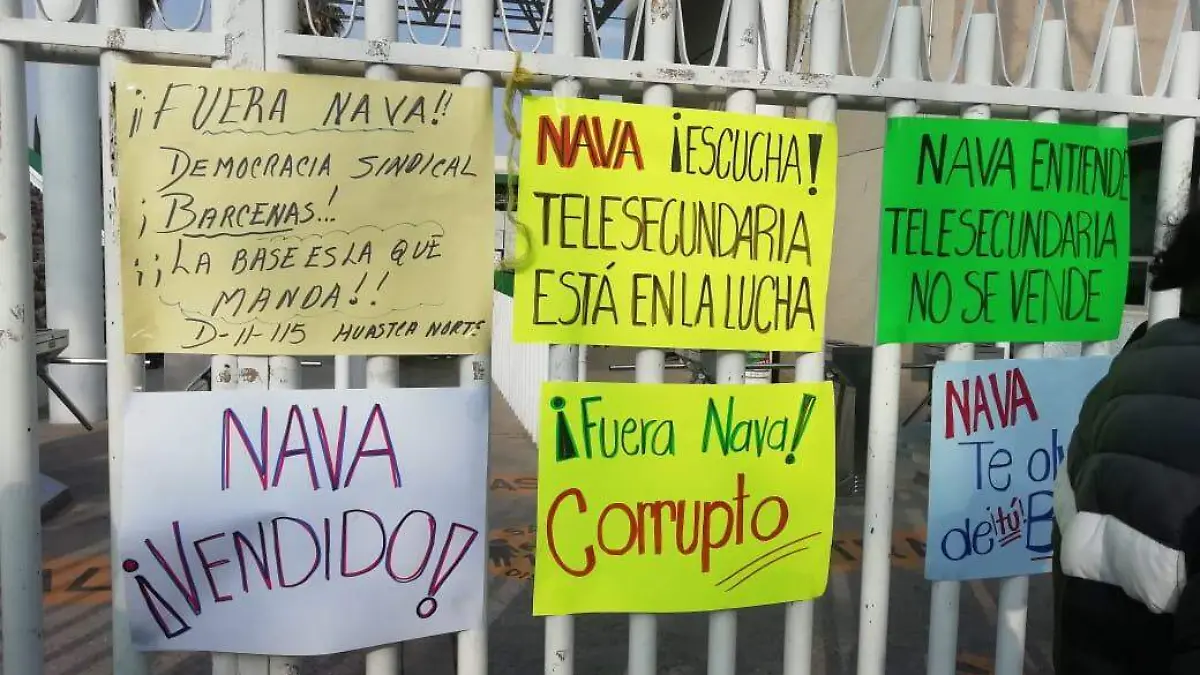 ¡¡FUERA NAVA!!
DEMOCRACIA SINDICAL
¡BARCENAS..!
¡¡LA BASE ES LA QUE
MANDA!!
D-II-115 HUASTECA NORTE
NAVA ¡ESCUCHA!
TELESECUNDARIA
ESTÁ EN LA LUCHA
NAVA ENTIENDE
TELESECUNDARIA
NO SE VENDE
NAVA
¡VENDIDO!
¡Fuera Nava!
Corrupto
NAVA
Te
de ¡tú!